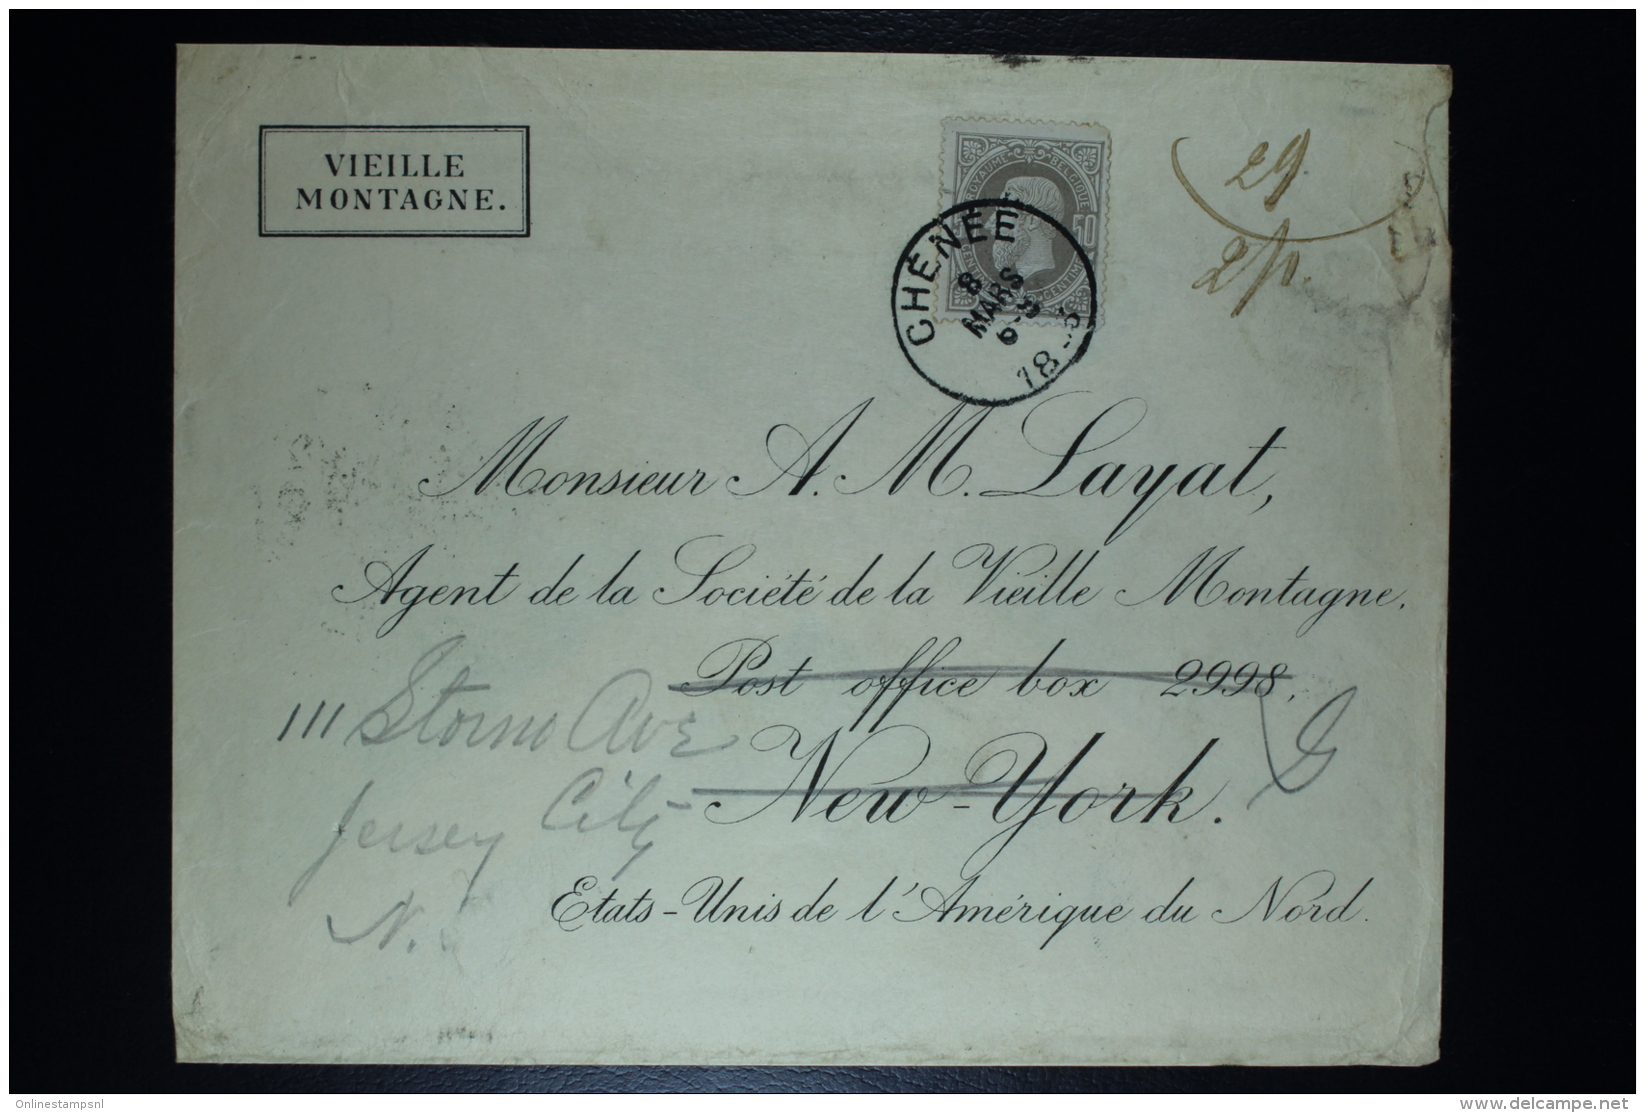 VIEILLE
MONTAGNE.
ROYAUME BELGIQUE
50
CHÊNÉE
8
MARS
6-S
18
29
2/p.
Monsieur A. M. Layat,
Agent de la Société de la Vieille Montagne.
Post office box 2998,
111 Storms Ave
New-York.
Jersey City
N.
Etats-Unis de l'Amérique du Nord.
Onlinestampsnl
www.delcampe.net